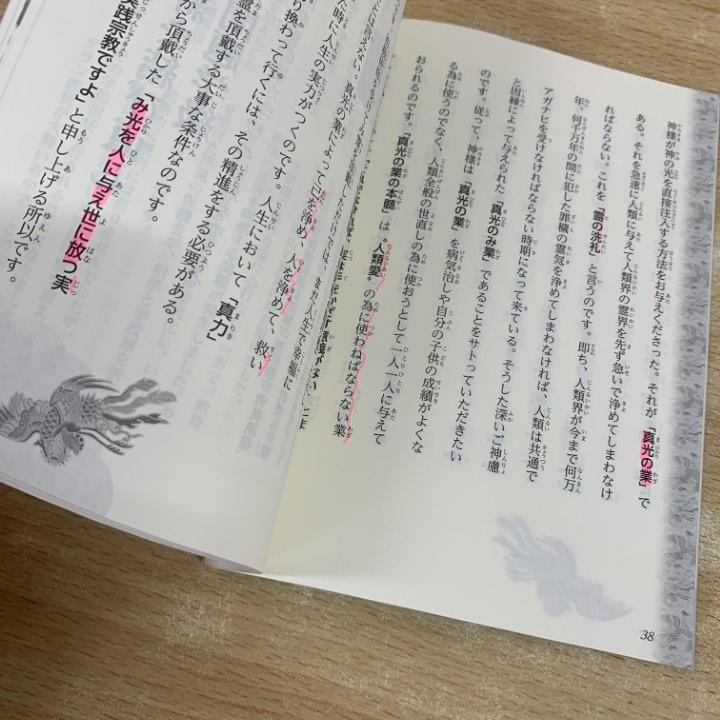 神様が神の光を直接注入する方法をお与えくださった。それが「真光の業」で
ある。それを急速に人類に与えて人類界の霊界を先ず急いで浄めてしまわなけ
ればならない。これを「霊の洗礼」と言うのです。即ち、人類界が今まで何万
年、何千万年の間に犯した罪穢の霊気を浄めてしまわなければ、人類は共通で
アガナヒを受けなければならない時期になって来ている。そうした深いご神慮
と因縁によって与えられた「真光のみ業」であることをサトっていただきたい
のです。従って、神様は「真光の業」を病気治しや自分の子供の成績がよくな
る為に使うのでなく、人類全般の世直しの為に使おうとして一人一人に与えて
おられるのです。「真光の業の本髄」は〝人類愛〟の為に使わねばならない業
38
た時に人生の実力がつくのです。人生において「真力」
り換わって行くには、その精進をする必要がある。
霊を頂戴する大事な条件なのです。
から頂戴した「み光を人に与え世に放つ実
実践宗教ですよ」と申し上げる所以です。